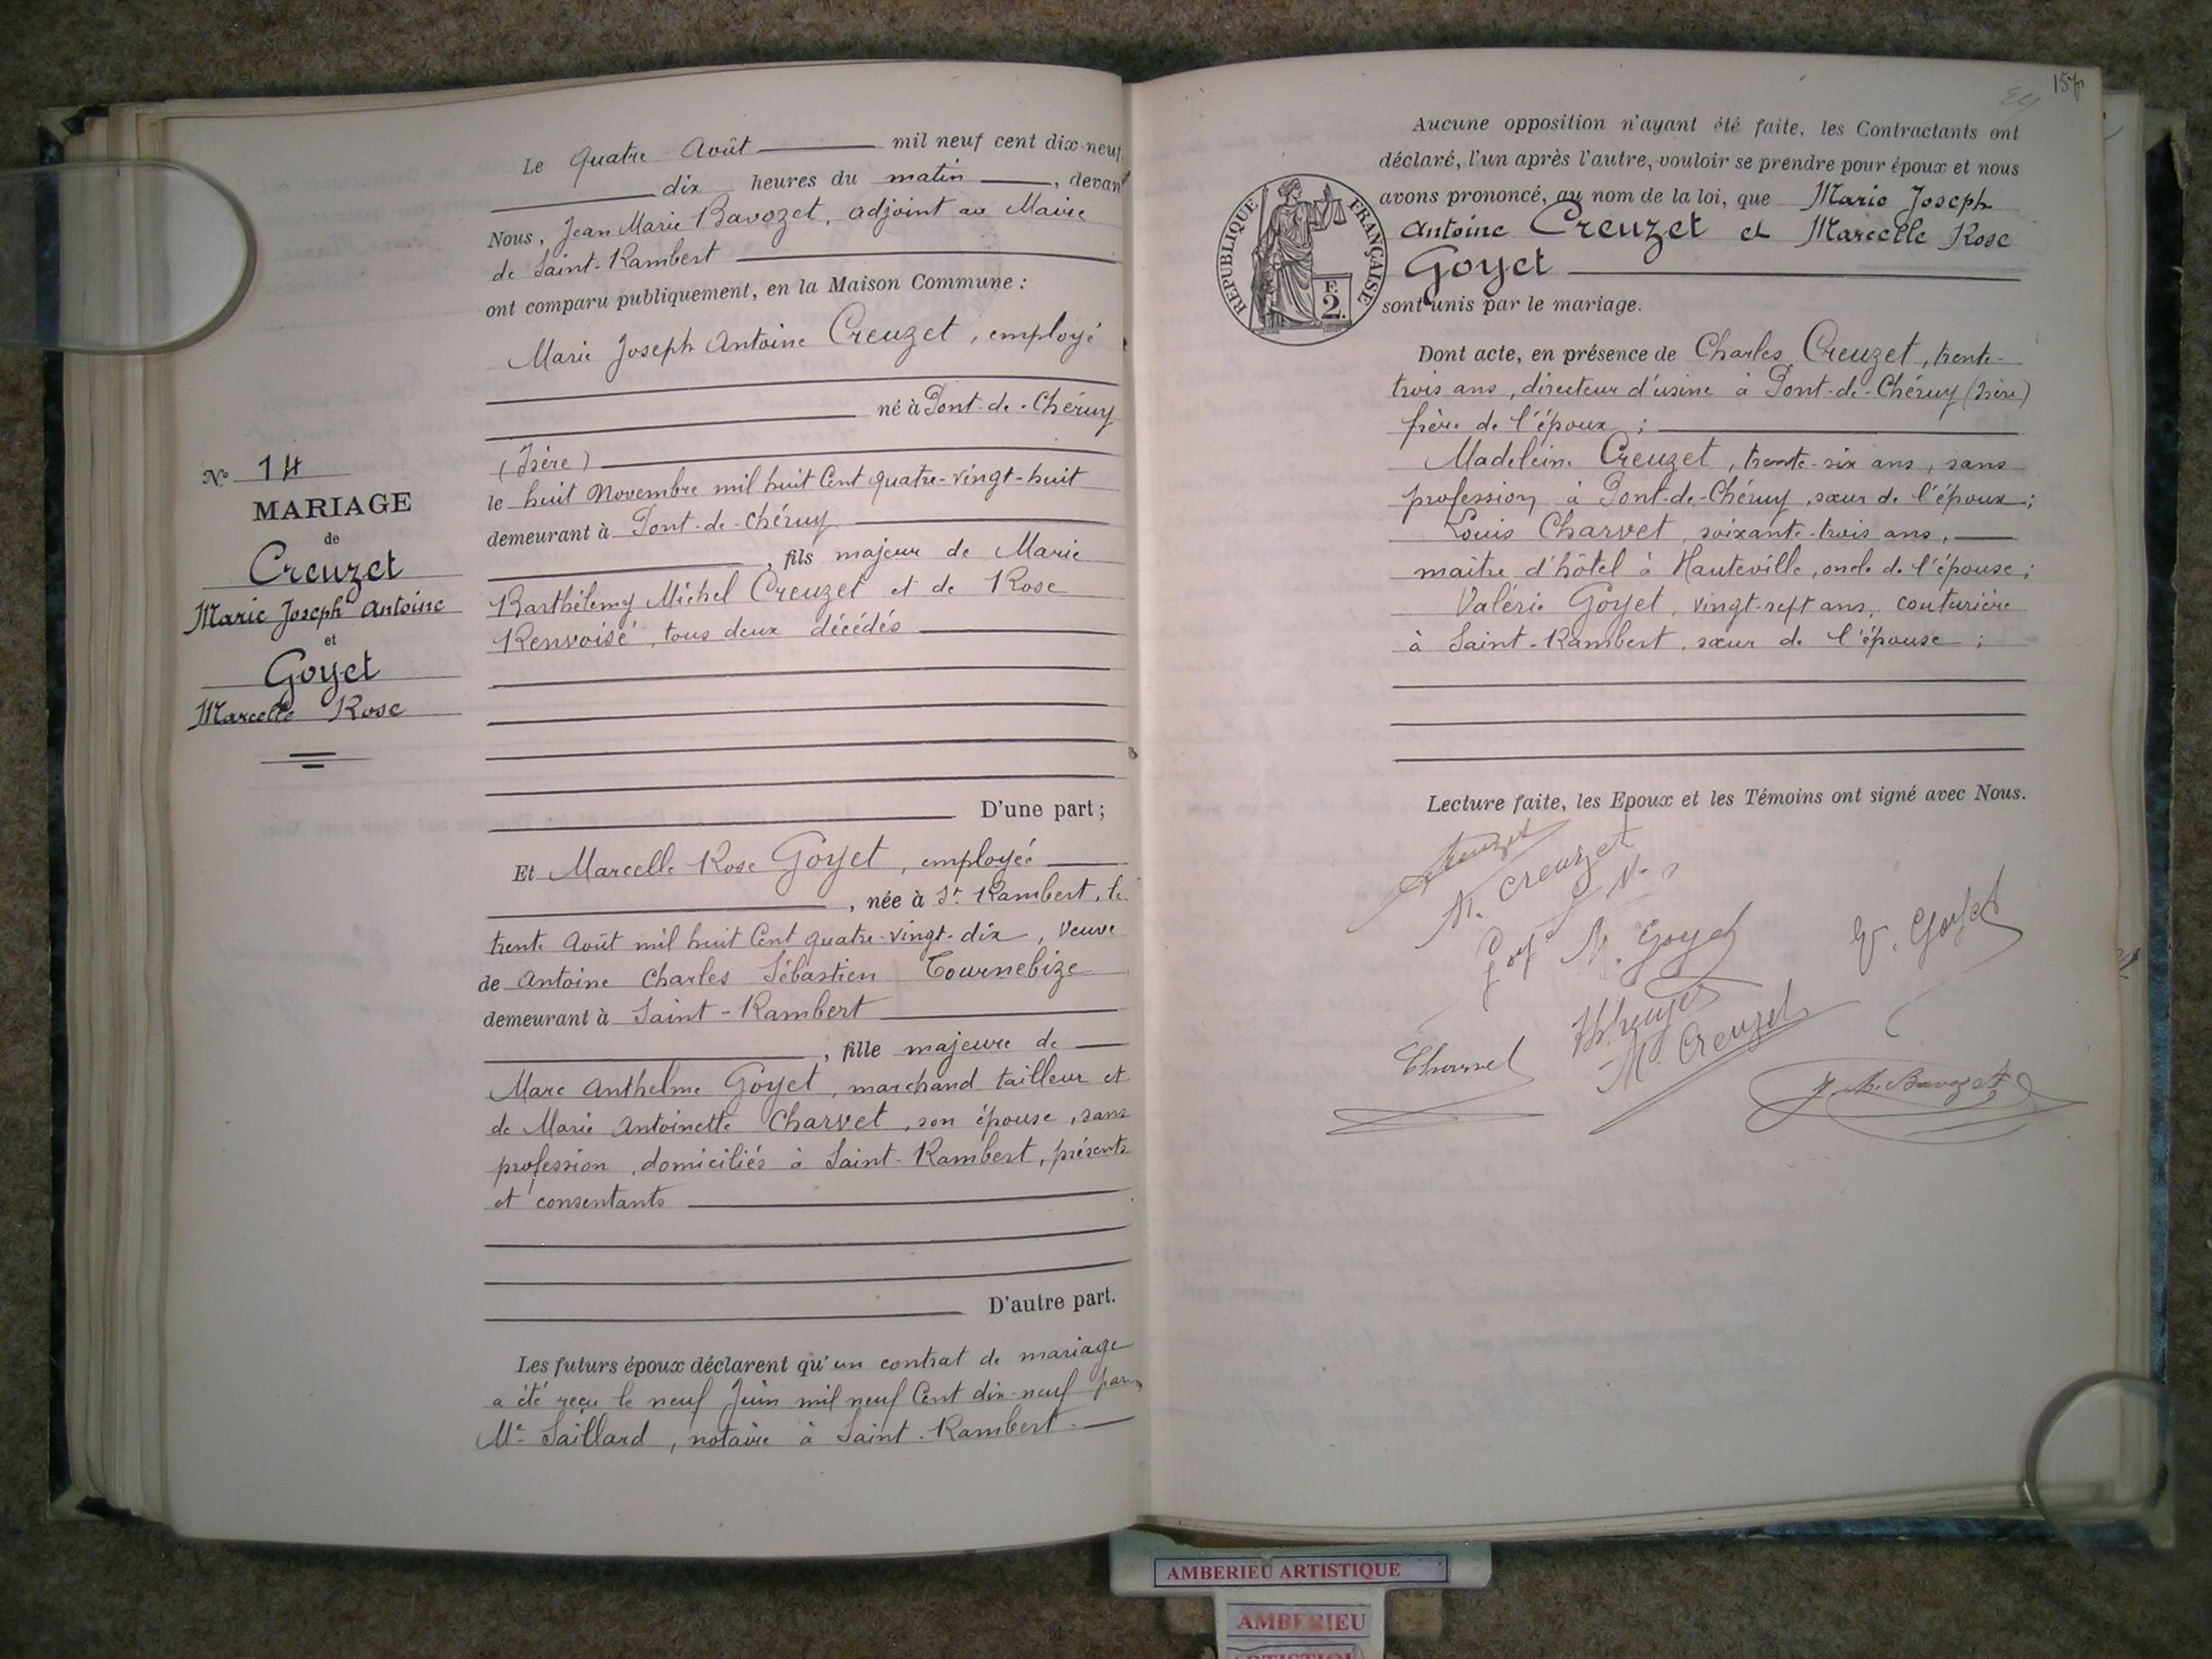 N° 14
MARIAGE
de
Creuzet
Marie Joseph Antoine
et
Goyet
Marcelle Rose
Le quatre Août mil neuf cent dix-neuf
dix heures du matin, devant
Nous, Jean Marie Bavozet, adjoint au Maire
de Saint-Rambert
ont comparu publiquement, en la Maison Commune :
Marie Joseph Antoine Creuzet, employé
né à Pont-de-Chéruy
(Isère)
le huit Novembre mil huit Cent quatre-vingt-huit
demeurant à Pont-de-Chéruy
, fils majeur de Marie
Barthélemy Michel Creuzet et de Rose
Renvoisé, tous deux décédés
D'une part ;
Et Marcelle Rose Goyet, employée
, née à St Rambert, le
trente Août mil huit Cent quatre-vingt-dix, veuve
de Antoine Charles Sébastien Tournebize
demeurant à Saint-Rambert
, fille majeure de
Marc Anthelme Goyet, marchand tailleur et
de Marie Antoinette Charvet, son épouse, sans
profession, domiciliés à Saint-Rambert, présents
et consentants
D'autre part.
Les futurs époux déclarent qu'un contrat de mariage
a été reçu le neuf Juin mil neuf Cent dix-neuf par
Me Saillard, notaire à Saint-Rambert.
Aucune opposition n'ayant été faite, les Contractants ont
déclaré, l'un après l'autre, vouloir se prendre pour époux et nous
avons prononcé, au nom de la loi, que Marie Joseph
Antoine Creuzet et Marcelle Rose
Goyet
sont unis par le mariage.
REPUBLIQUE FRANÇAISE
F.
2.
Dont acte, en présence de Charles Creuzet, trente-
trois ans, directeur d'usine à Pont-de-Chéruy (Isère)
frère de l'époux ;
Madeleine Creuzet, trente-six ans, sans
profession à Pont-de-Chéruy, sœur de l'époux ;
Louis Charvet, soixante-trois ans,
maître d'hôtel à Hauteville, oncle de l'épouse ;
Valérie Goyet, vingt-sept ans, couturière
à Saint-Rambert, sœur de l'épouse ;
Lecture faite, les Epoux et les Témoins ont signé avec Nous.
Creuzet
M. Creuzet
M. Goyet
V. Goyet
M. Creuzet
J. M. Bavozet
AMBERIEU ARTISTIQUE
AMBERIEU
ARTISTIQUE